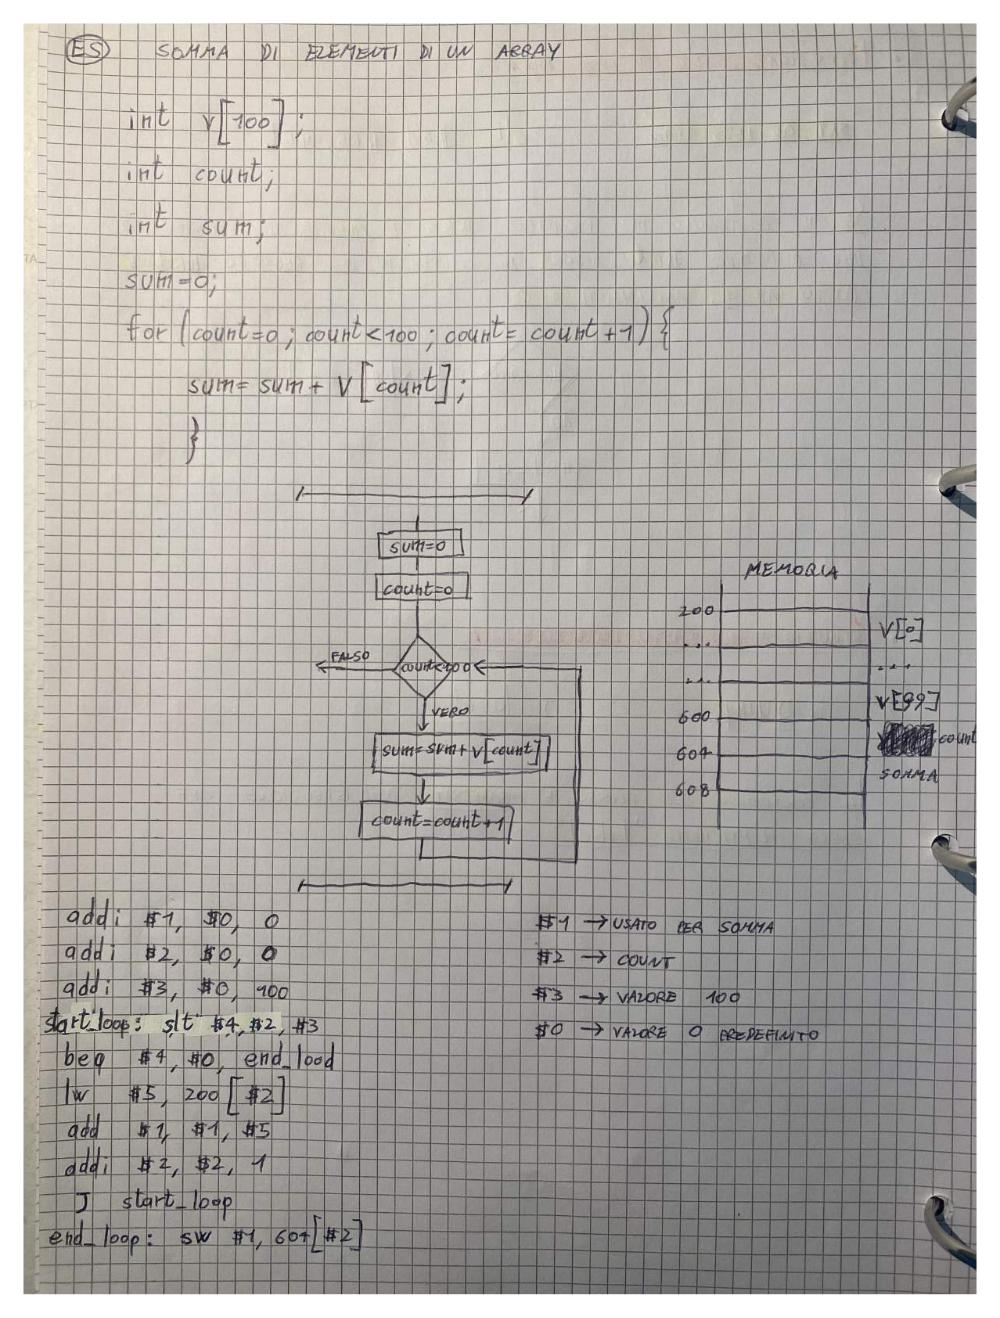 ES SOMMA DI ELEMENTI DI UN ARRAY
int v[100];
int count;
int sum;
sum=0;
for (count=0; count<100; count= count+1) {
sum= sum + V[count];
}
sum=0
count=0
count<100
FALSO
VERO
sum=sum+V[count]
count=count+1
MEMORIA
200
V[0]
...
...
...
V[99]
600
count
604
SOMMA
608
addi $1, $0, 0
addi $2, $0, 0
addi $3, $0, 100
start_loop: slt $4, $2, $3
beq $4, $0, end_lood
lw $5, 200[$2]
add $1, $1, $5
addi $2, $2, 1
J start_loop
end_loop: sw $1, 604[$2]
$1 → USATO PER SOMMA
$2 → COUNT
$3 → VALORE 100
$0 → VALORE 0 PREDEFINITO